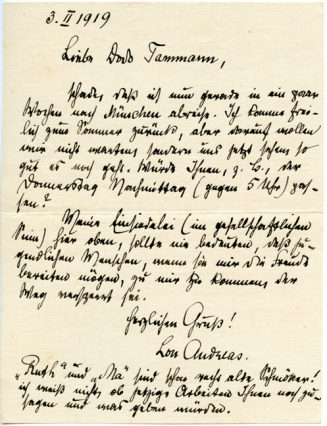 3. II 1919
Liebe Dodo Tammann,
schade, daß ich nun gerade in ein paar
Wochen nach München abreise. Ich komme frei-
lich zum Sommer zurück, aber darauf wollen
wir nicht warten, sondern uns jetzt sehen so
gut es noch geht. Würde Ihnen, z. B., der
Donnerstag Nachmittag (gegen 5 Uhr) pas-
sen?
Meine Einsiedelei (im gesellschaftlichen
Sinn) hier oben, sollte nie bedeuten, daß ju-
gendlichen Menschen, wenn sie mir die Freude
bereiten mögen, zu mir zu kommen, der
Weg versperrt sei.
Herzlichen Gruß!
Lou Andreas.
"Ruth" und "Ma" sind schon recht alte Schmöker!
ich weiß nicht, ob jetzige Arbeiten Ihnen noch zu-
sagen und was geben würden.